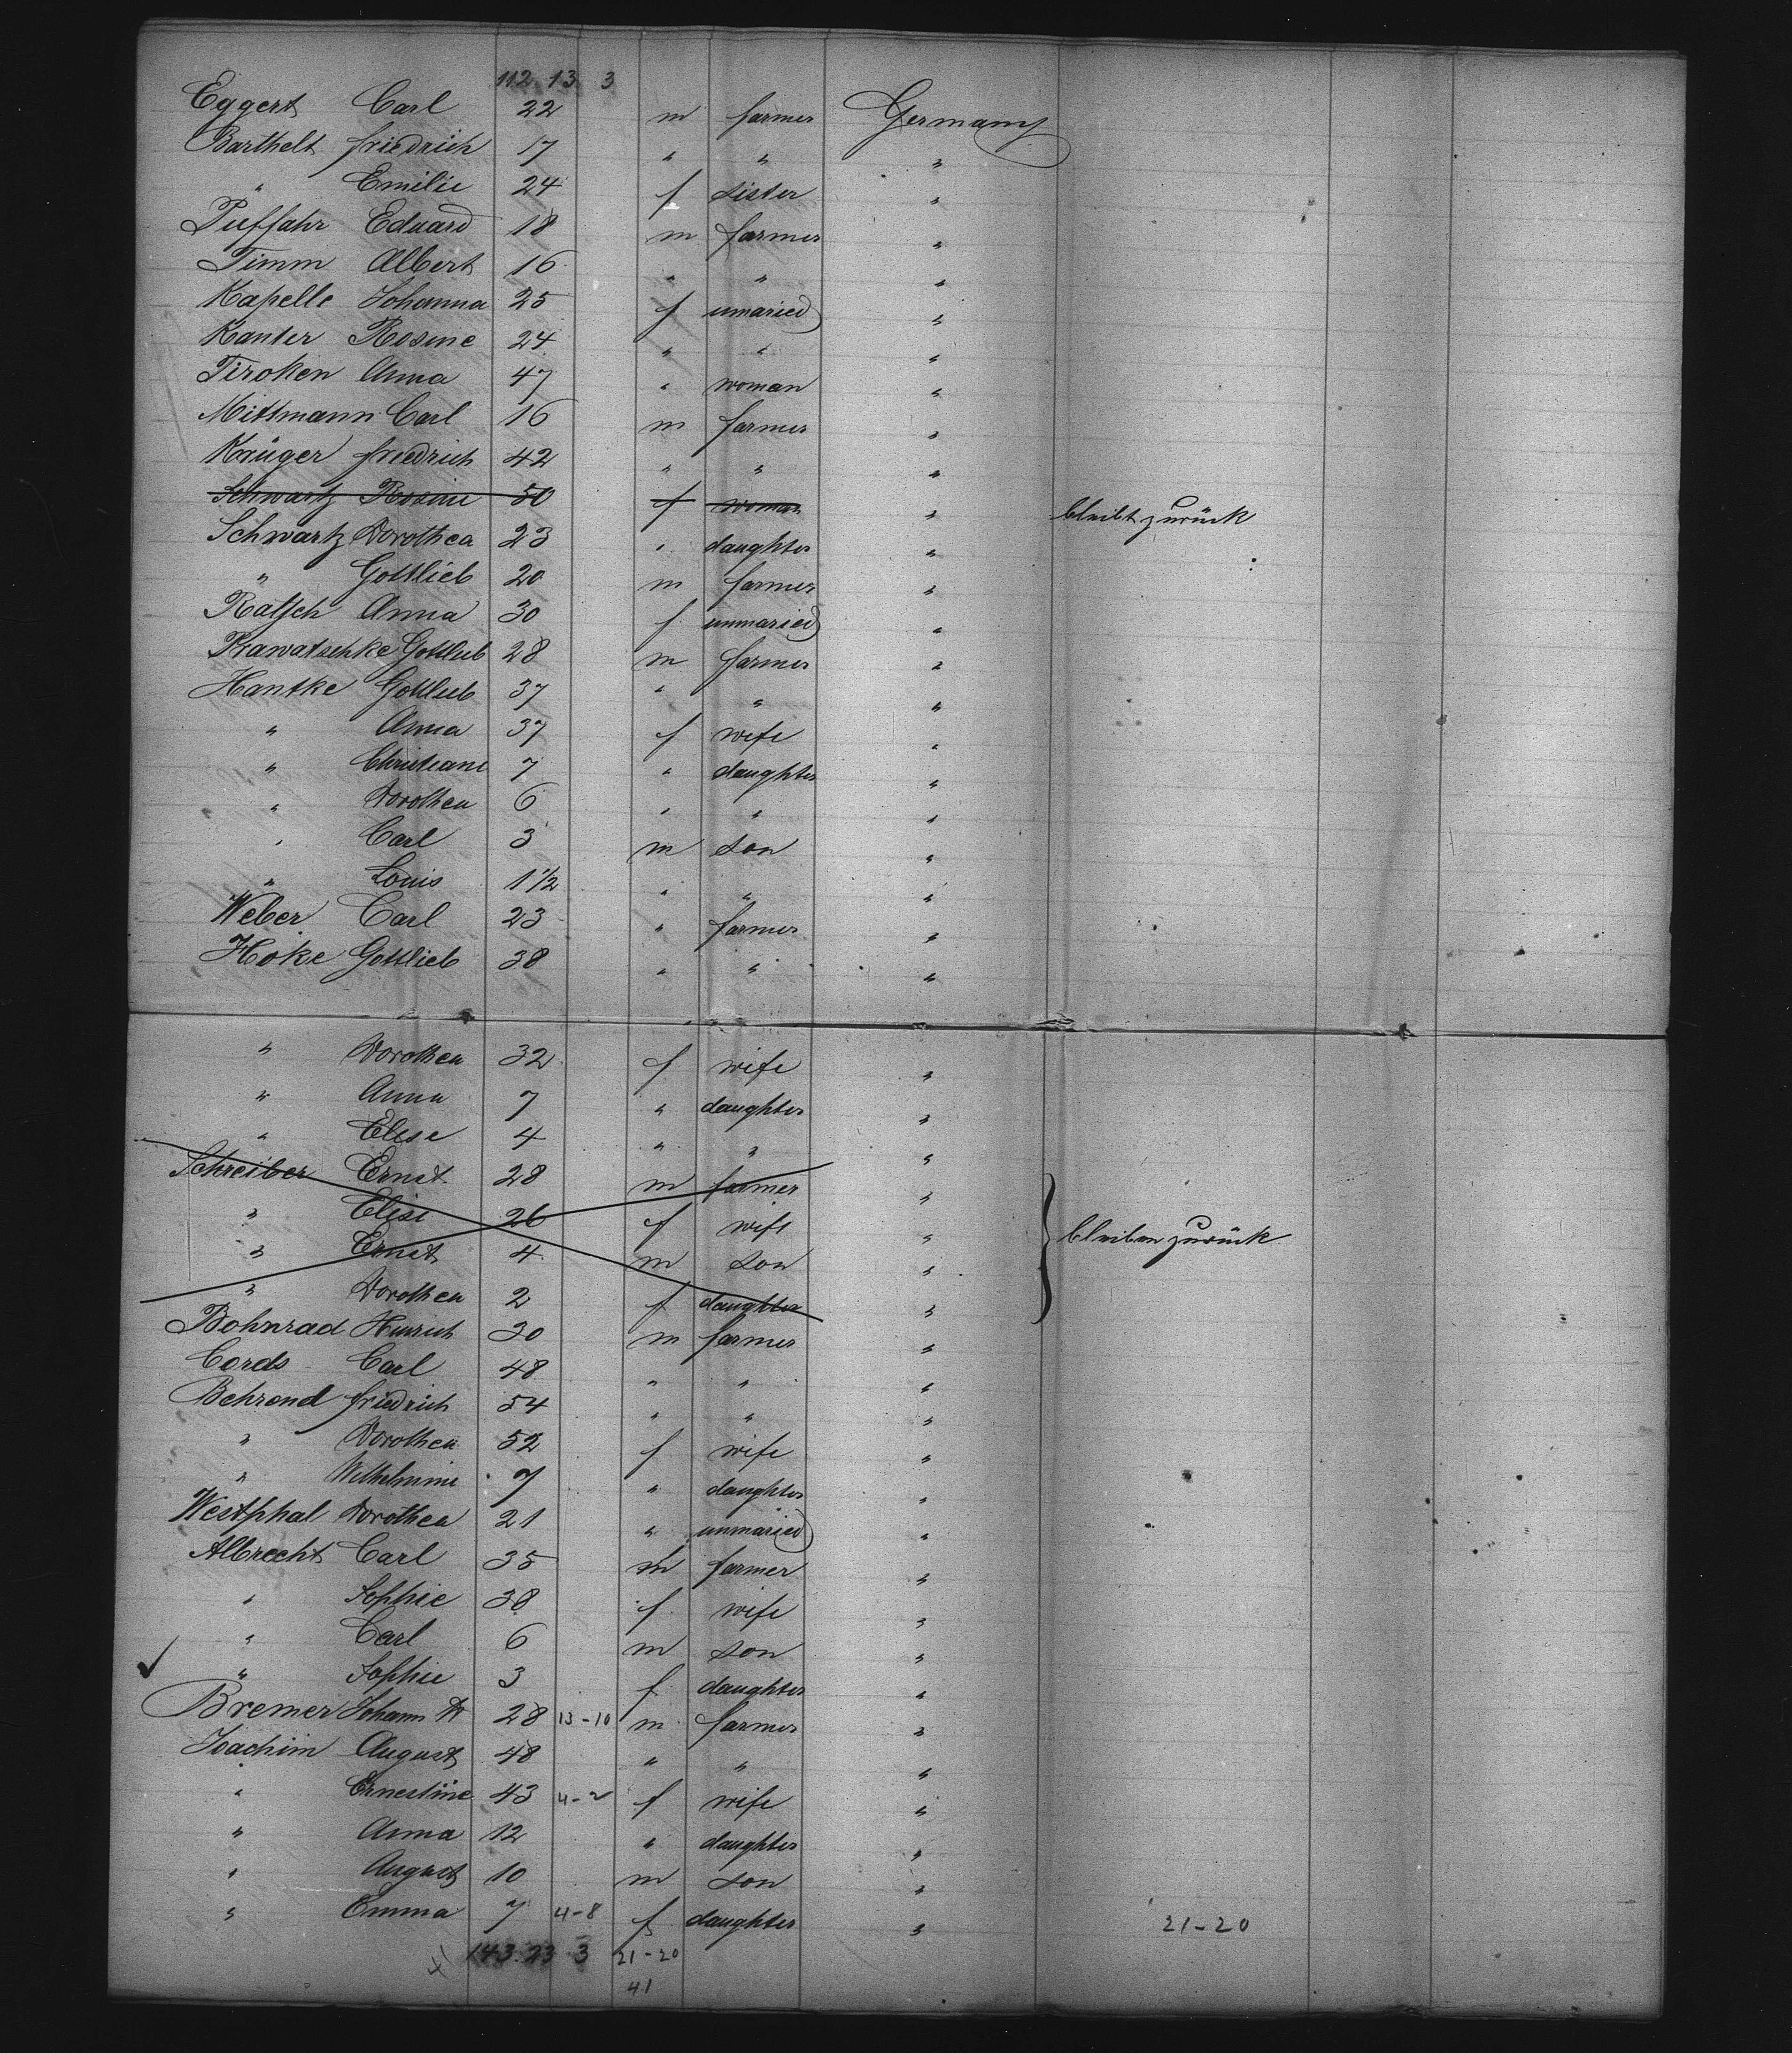 112 13 3
Eggert Carl 22 m farmer Germany
Barthelt Friedrich 17 " " "
" Emilie 24 f sister "
Puffahr Eduard 18 m farmer "
Timm Albert 16 " " "
Kapelle Johanna 25 f unmaried "
Kanter Rosine 24 " " "
Tiroken Anna 47 " woman "
Mittmann Carl 16 m farmer "
Krüger Friedrich 42 " " "
Schwartz Rosine 50 f woman " bleibt zurück
Schwartz Dorothea 23 " daughter "
" Gottlieb 20 m farmer "
Ratsch Anna 30 f unmaried "
Krawatschke Gottlieb 28 m farmer "
Hantke Gottlieb 37 " " "
" Anna 37 f wife "
" Christiane 7 " daughter "
" Dorothea 6 " " "
" Carl 3 m son "
" Louis 1 1/2 " " "
Weber Carl 23 " farmer "
Hoke Gottlieb 38 " " "
" Dorothea 32 f wife "
" Anna 7 " daughter "
" Elise 4 " " "
Schreiber Ernst 28 m farmer "
" Elise 26 f wife " bleiben zurück
" Ernst 4 m son "
" Dorothea 2 f daughter "
Bohnrad Hinrich 30 m farmer "
Cords Carl 48 " " "
Behrend Friedrich 54 " " "
" Dorothea 52 f wife "
" Wilhelmine 7 " daughter "
Westphal Dorothea 21 " unmaried "
Albrecht Carl 35 m farmer "
" Sophie 38 f wife "
" Carl 6 m son "
" Sophie 3 f daughter "
Bremer Johann 28 13-10 m farmer "
Joachim August 48 " " "
" Ernestine 43 4-2 f wife "
" Anna 12 " daughter "
" August 10 m son "
" Emma 7 4-8 f daughter " 21-20
143 23 3 21-20
41